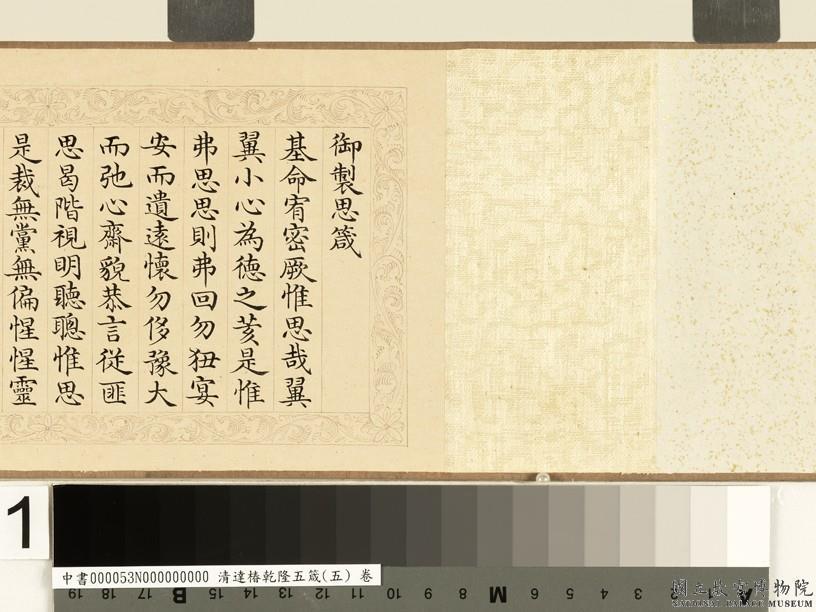 御製思箴
基命宥密厥惟思哉翼
翼小心為德之荄是惟
弗思思則弗回勿狃宴
安而遺遠懷勿侈豫大
而弛心齋貌恭言從匪
思曷階視明聽聰惟思
是裁無黨無偏惺惺靈
1
中書000053N000000000 清達椿乾隆五箴(五) 卷
19 18 17 16 15 B 14 13 12 11 10 9 8 M 7 6 5 4 3 2 1 A
國立故宮博物院
NATIONAL PALACE MUSEUM